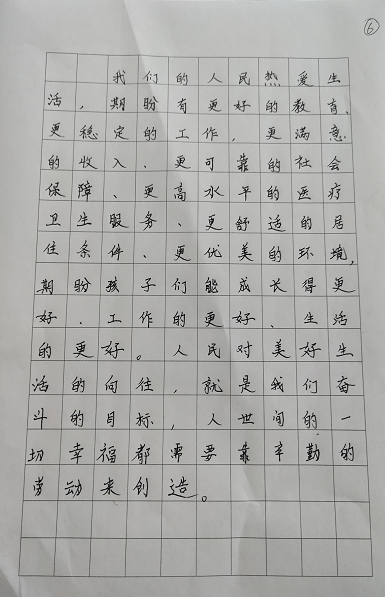 ⑥
我们的人民热爱生
活，期盼有更好的教育、
更稳定的工作、更满意
的收入、更可靠的社会
保障、更高水平的医疗
卫生服务、更舒适的居
住条件、更优美的环境，
期盼孩子们能成长得更
好、工作的更好、生活
的更好。人民对美好生
活的向往，就是我们奋
斗的目标，人世间的一
切幸福都需要靠辛勤的
劳动来创造。